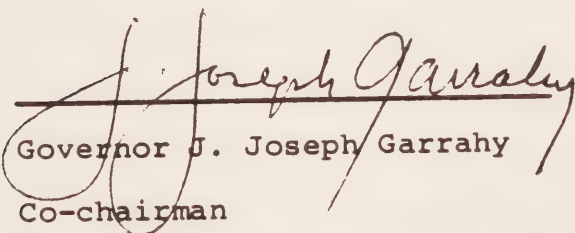 J. Joseph Garrahy
Governor J. Joseph Garrahy
Co-chairman